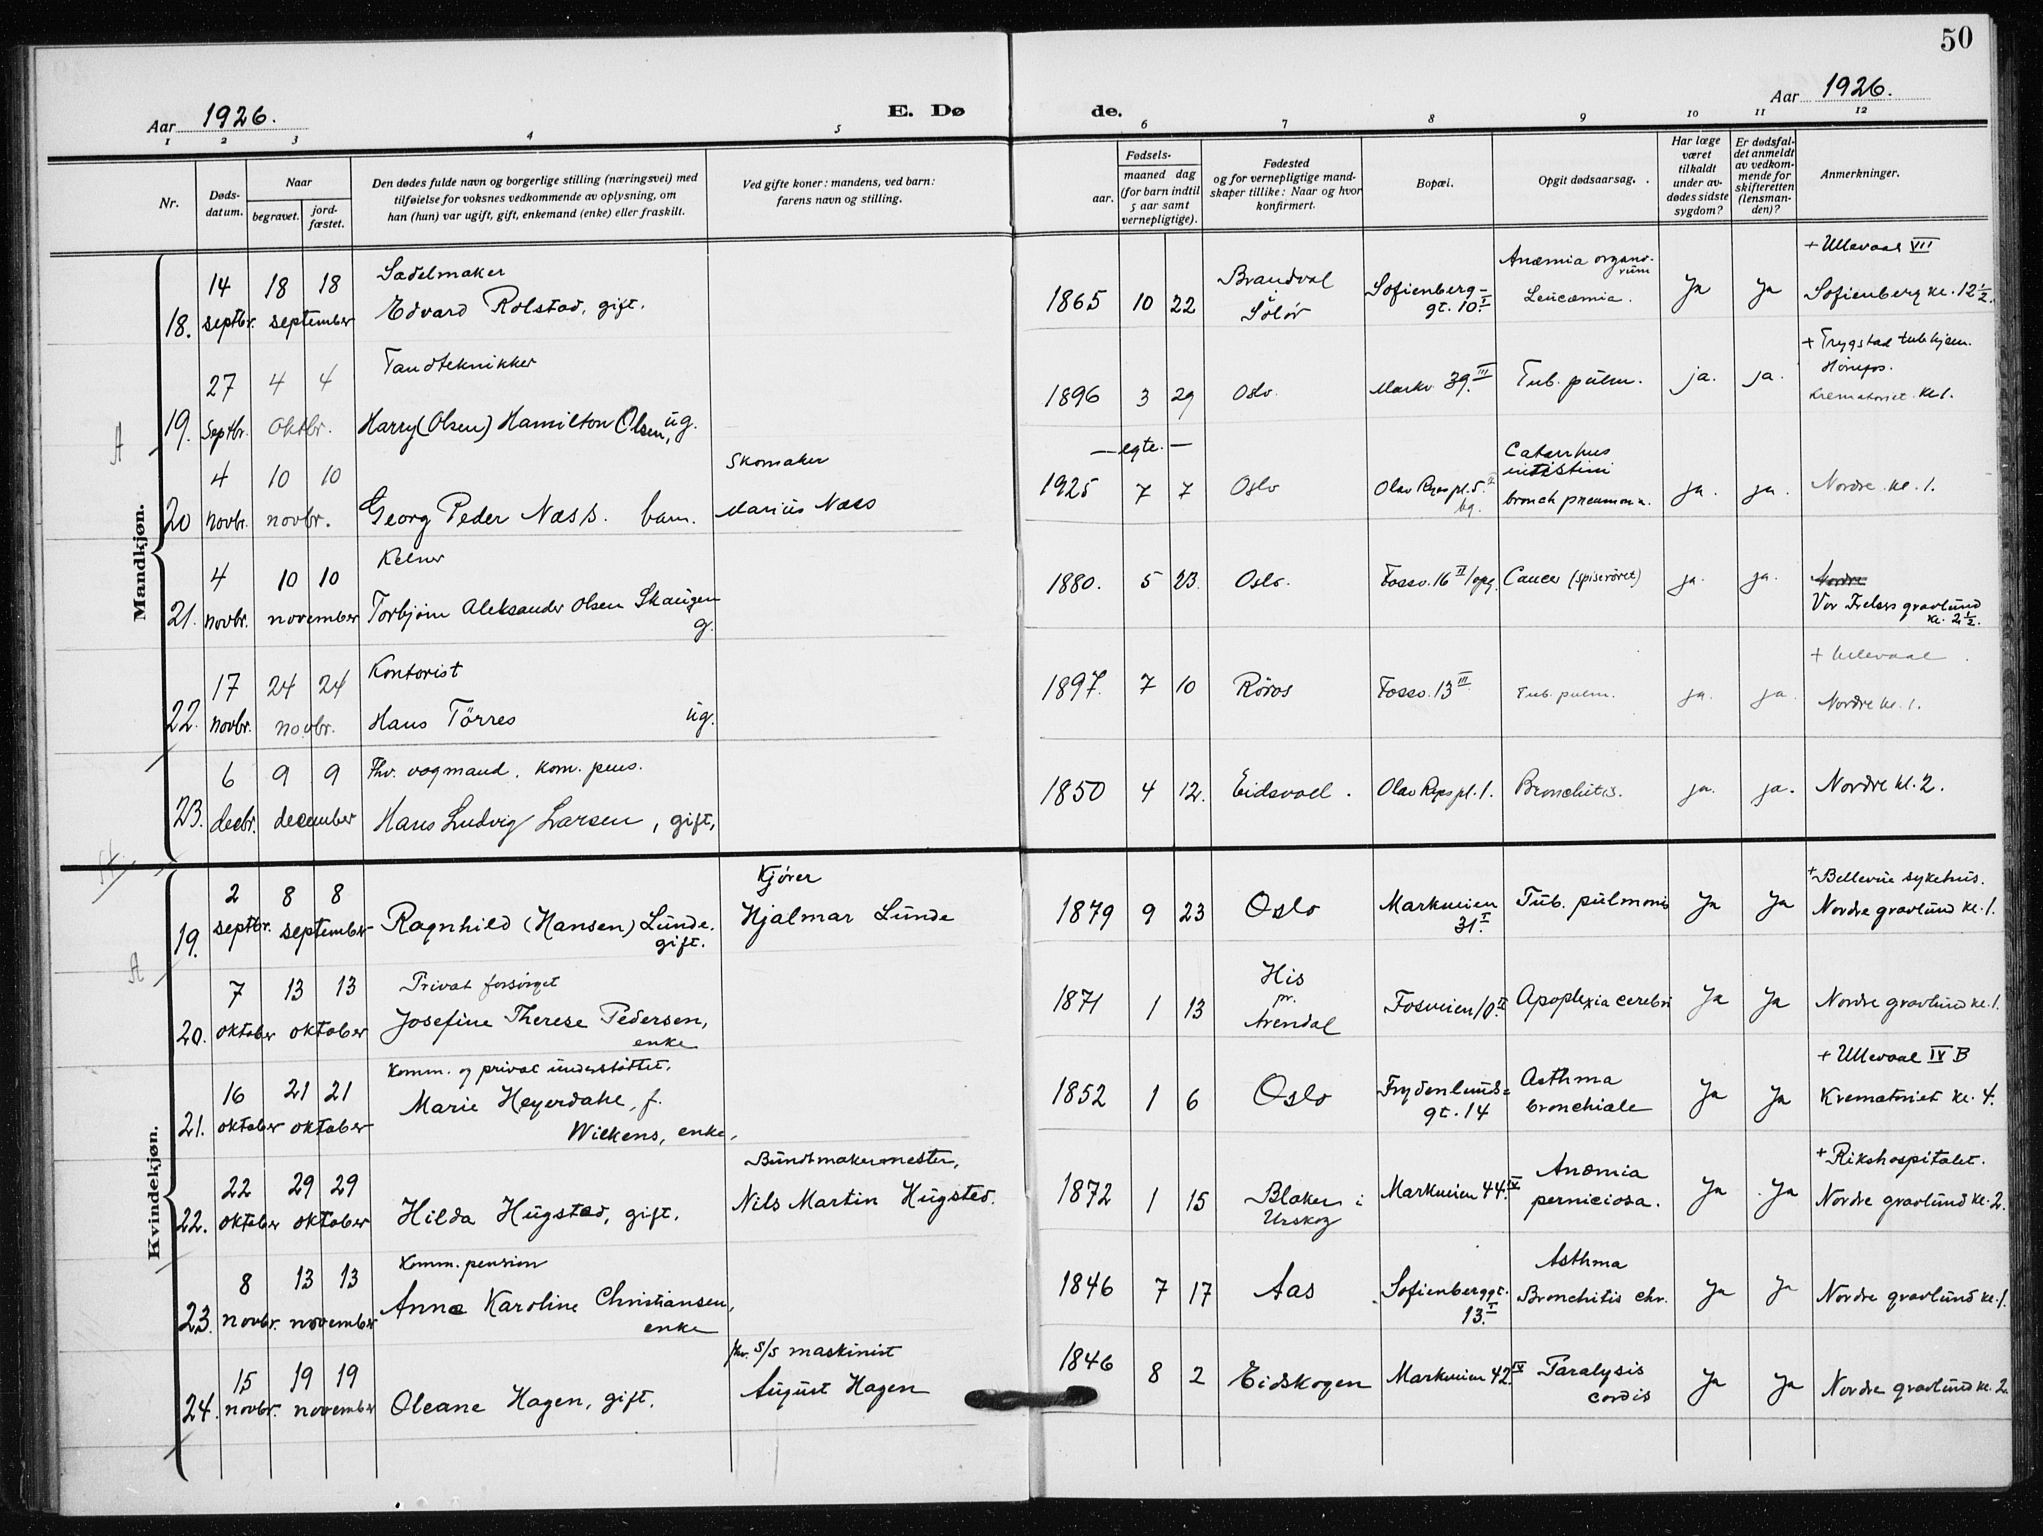 50
Aar 1926. E. Dø de. Aar 1926.
1 2 3 4 5 6 7 8 9 10 11 12
Nr.
Døds-
datum.
Naar
begravet.
jord-
fæstet.
Den dødes fulde navn og borgerlige stilling (næringsvei) med
tilføielse for voksnes vedkommende av oplysning, om
han (hun) var ugift, gift, enkemand (enke) eller fraskilt.
Ved gifte koner: mandens, ved barn:
farens navn og stilling.
Fødsels-
aar.
maaned dag
(for barn indtil
5 aar samt
vernepligtige).
Fødested
og for vernepligtige mand-
skaper tillike: Naar og hvor
konfirmert.
Bopæl.
Opgit dødsaarsag.
Har læge
været
tilkaldt
under av-
dødes sidste
sygdom?
Er dødsfal-
det anmeldt
av vedkom-
mende for
skifteretten
(lensman-
den)?
Anmerkninger.
Mandkjøn.
18. 14 septbr. 18 18 september
Sadelmaker
Edvard Rolstad, gift.
1865 10 22
Brandval
i
Solør
Sofienberg=
gt. 10 I
Anæmia organo-
rum
Leucæmia.
Ja Ja
+ Ullevaal VII
Sofienberg kl. 12 1/2.
A
19. 27 Septbr. 4 4 oktbr.
Tandtekniker
Harry (Olsen) Hamilton Olsen, ug.
1896 3 29 Oslo. Markv. 39. III Tub. pulm. ja. ja.
+ Trygstad tubhjem.
Hønefos.
Krematoriet kl. 1.
20 4 novbr. 10 10 novbr.
Georg Peder Næss. barn.
Skomaker
Marius Næss
— egte. —
1925 7 7 Oslo Olav Ryespl. 5. II
bg.
Catarrhus
intistini
bronch pneumoni.
ja. ja. Nordre. kl. 1.
21. 4 novbr. 10 10 november
Kelner
Torbjørn Aleksander Olsen Skaugen
g.
1880. 5 23. Oslo. Fossv. 16 II/opg. Cancer (spiserøret) ja. ja.
Nordre
Vor Frelsers gravlund
kl. 2 1/2.
22. 17 novbr. 24 24 novbr.
Kontorist
Hans Törres ug.
1897. 7 10 Röros Fossv. 13 III Tub. pulm. ja. ja.
+ Ullevaal.
Nordre kl. 1.
23. 6 decbr. 9 9 december
Fhv. vogmand. kom. pens.
Hans Ludvig Larsen, gift,
1850 4 12. Eidsvoll. Olav Ryespl. 1. Bronchitis. ja. ja. Nordre kl. 2.
Kvindekjøn.
19. 2 septbr. 8 8 september
Ragnhild (Hansen) Lunde.
gift.
Kjører
Hjalmar Lunde
1879 9 23 Oslo
Markveien
31. I
Tub. pulmonis Ja Ja
+ Bellevue sykehus.
Nordre gravlund kl. 1.
A
20. 7 oktober 13 13 oktober
Privat forsørget
Josefine Therese Pedersen,
enke
1871 1 13
His
pr.
Arendal
Fosveien 10. II Apoplexia cerebri Ja Ja Nordre gravlund kl. 1.
21. 16 oktober 21 21 oktober
Komm. og privat understøttet.
Marie Heyerdahl, f.
Wilkens, enke,
1852 1 6 Oslo
Frydenlunds=
gt. 14
Asthma
bronchiale
Ja Ja
+ Ullevaal IV B
Krematoriet kl. 4.
22. 22 oktober 29 29 oktober
Hilda Hugsted, gift.
Buntmakermester,
Nils Martin Hugsted.
1872 1 15
Blaker i
Urskog
Markveien 44. IV
Anæmia
perniciosa.
Ja Ja
+ Rikshospitalet.
Nordre gravlund kl. 2.
23. 8 novbr. 13 13 november
Komm. pension
Anna Karoline Christiansen,
enke
1846 7 17 Aas
Sofienberggt.
13. I
Asthma
Bronchitis chr.
Ja Ja Nordre gravlund kl. 1.
24. 15 novbr. 19 19 november
Oleane Hagen, gift.
fhv. S/S maskinist
August Hagen
1846 8 2 Eidskogen Markveien 42. IV
Paralysis
cordis
Ja Ja Nordre gravlund kl. 2.